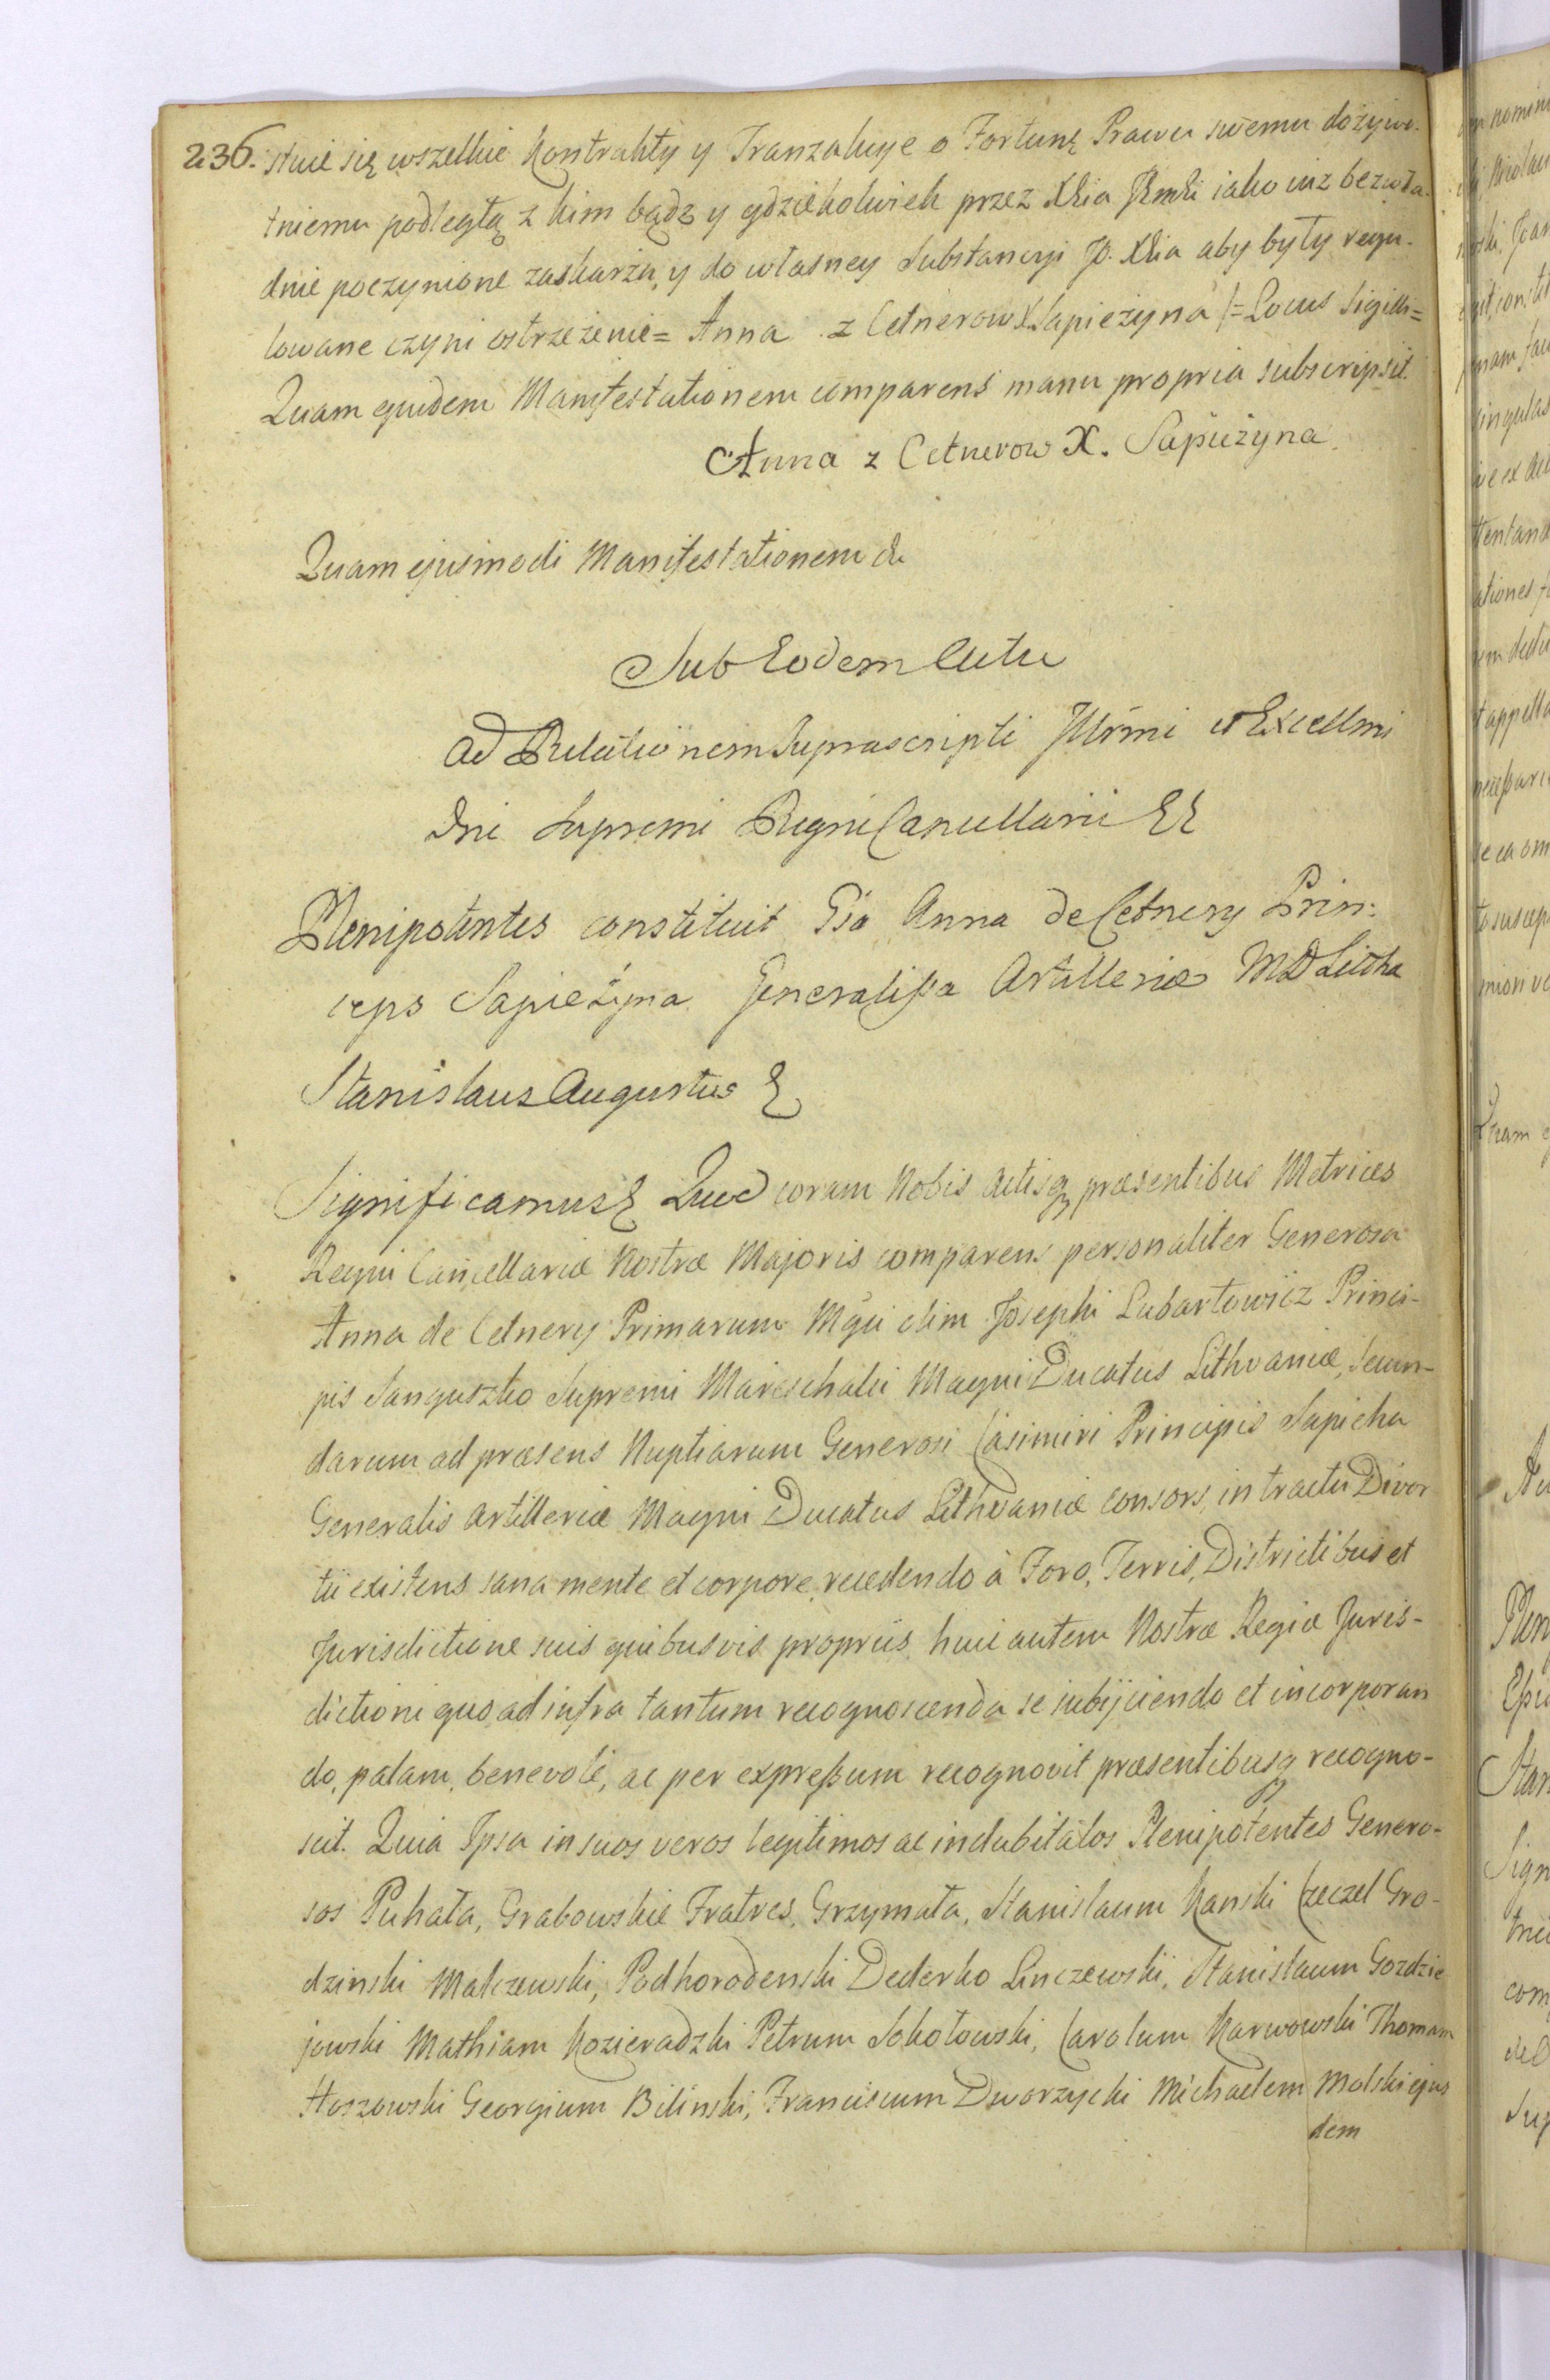 236. stwie się wszelkie Kontrakty y Tranzakcye o Fortunę Prawu swemu dożywo-
tniemu podległą z kim bądz y gdziekolwiek przez Xcia Jmci iako iuż bezwła-
dnie poczynione zaskarża, y do własney Substancyi Jo. Xcia aby były regu-
lowane czyni ostrzeżenie = Anna z Cetnerow X Sapieżyna /= Locus Sigilli =
Quam quidem Manifestationem comparens manu propria subscripsit.
Anna z Cetnerow X. Sapieżyna.
Quam ejusmodi Manifestationem &
Sub Eodem Actu
Ad Relationem Suprascripti Illrmi et Excellmi
Dni Supremi Regni Cancellarii &&
Plenipotentes constituit Gsa Anna de Cetnery Prin:
ceps Sapieżyna Generalissa Artilleriæ MD Litha
Stanislaus Augustus &
Significamus & Quod coram Nobis Actisq præsentibus Metrices
Regni Cancellariæ Nostræ Majoris comparens personaliter Generosa
Anna de Cetnery Primarum Mgci olim Josephi Lubartowicz Princi-
pis Sanguszko Supremi Mareschalci Magni Ducatus Lithvaniæ, Secun-
darum ad præsens Nuptiarum Generosi Casimiri Principis Sapieha
Generalis Artilleriæ Magni Ducatus Lithvaniæ consors, in tractu Divor
tii existens sana mente et corpore, recedendo à Foro, Terris, Districtibus et
Jurisdictione suis quibusvis propriis, huic autem Nostræ Regiæ Juris-
dictioni quo ad infra tantum recognoscenda se subijciendo et incorporan
do, palam, benevole, ac per expressum recognovit præsentibusq recogno-
scit. Quia Ipsa in suos veros legitimos ac indubitatos Plenipotentes Genero-
sos Puhała, Grabowskie Fratres, Grzymała, Stanislaum Kanski Czeczel Gro-
dzinski Malczewski, Podhorodenski Dederko Linczewski, Stanislaum Gozdzie
jowski Mathiam Kozieradzki Petrum Sokołowski, Carolum Karwowski Thomam
Hoszowski Georgium Bilinski, Franciscum Dworzycki Michaelem Molski ejus
dem